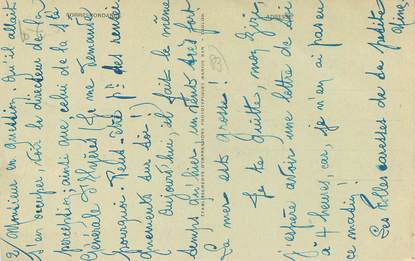 2/ Monsieur en question. Qu'il allait
s'en occuper, voir le directeur de la
perception, ainsi que celui de la Sté
Générale d'Hyères (je me demande
pourquoi. Peut-être pr des rensei-
gnements sur toi!)
Aujourd'hui, il fait le même
temps qu'hier, un vent très fort
La mer est grosse!
Je te quitte, mon
j'espère avoir une lettre de toi
à 4 heures, car, je n'en ai pas eu
ce matin!
Les folles caresses de ta petite
CORRESPONDANCE